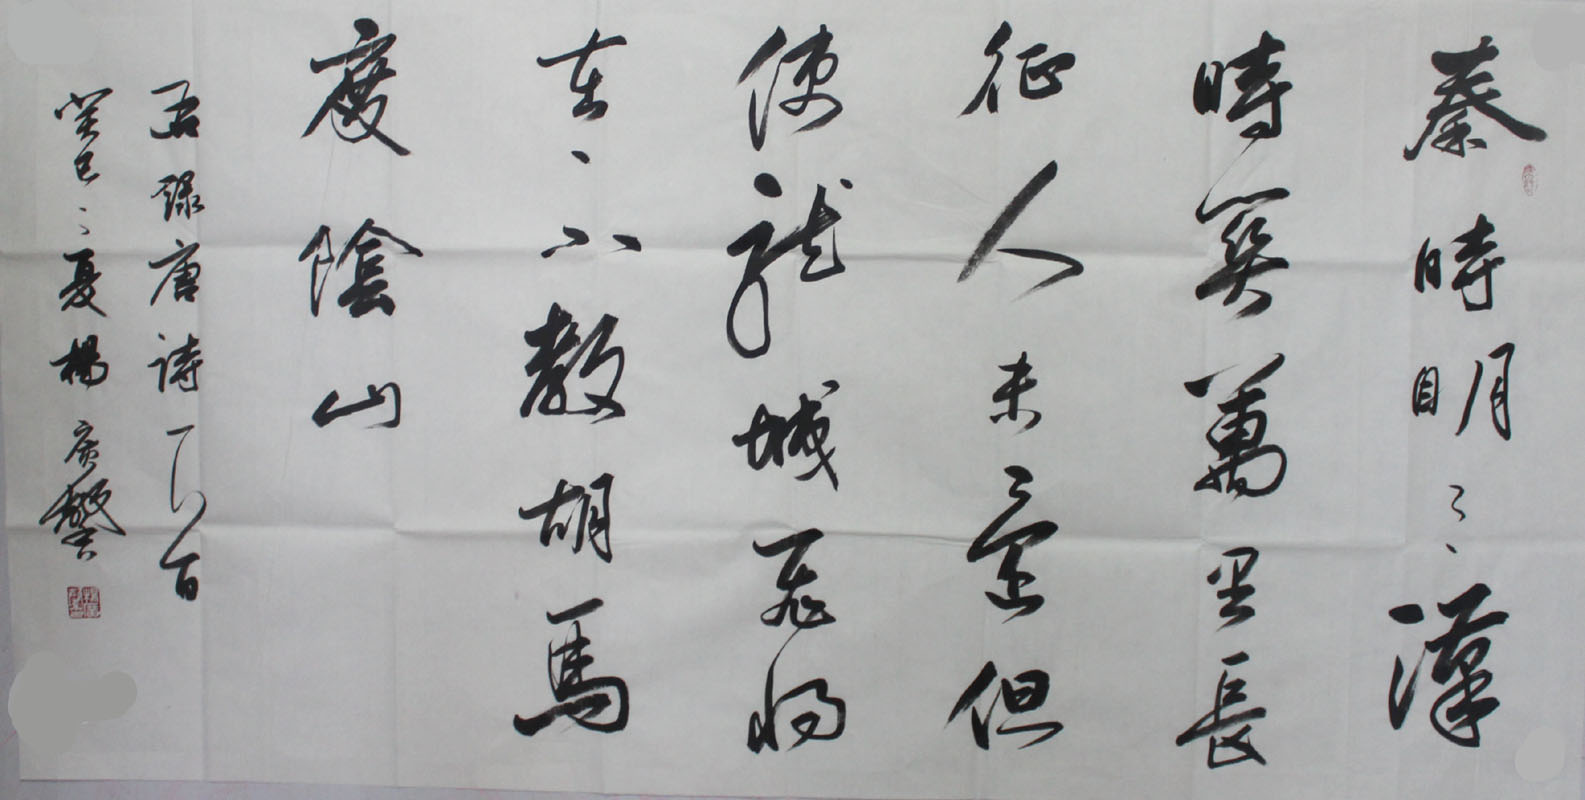 秦時明月漢
時關萬里長
征人未還但
使龍城飛將
在不教胡馬
度陰山
右錄唐詩一首
癸巳之夏楊廣